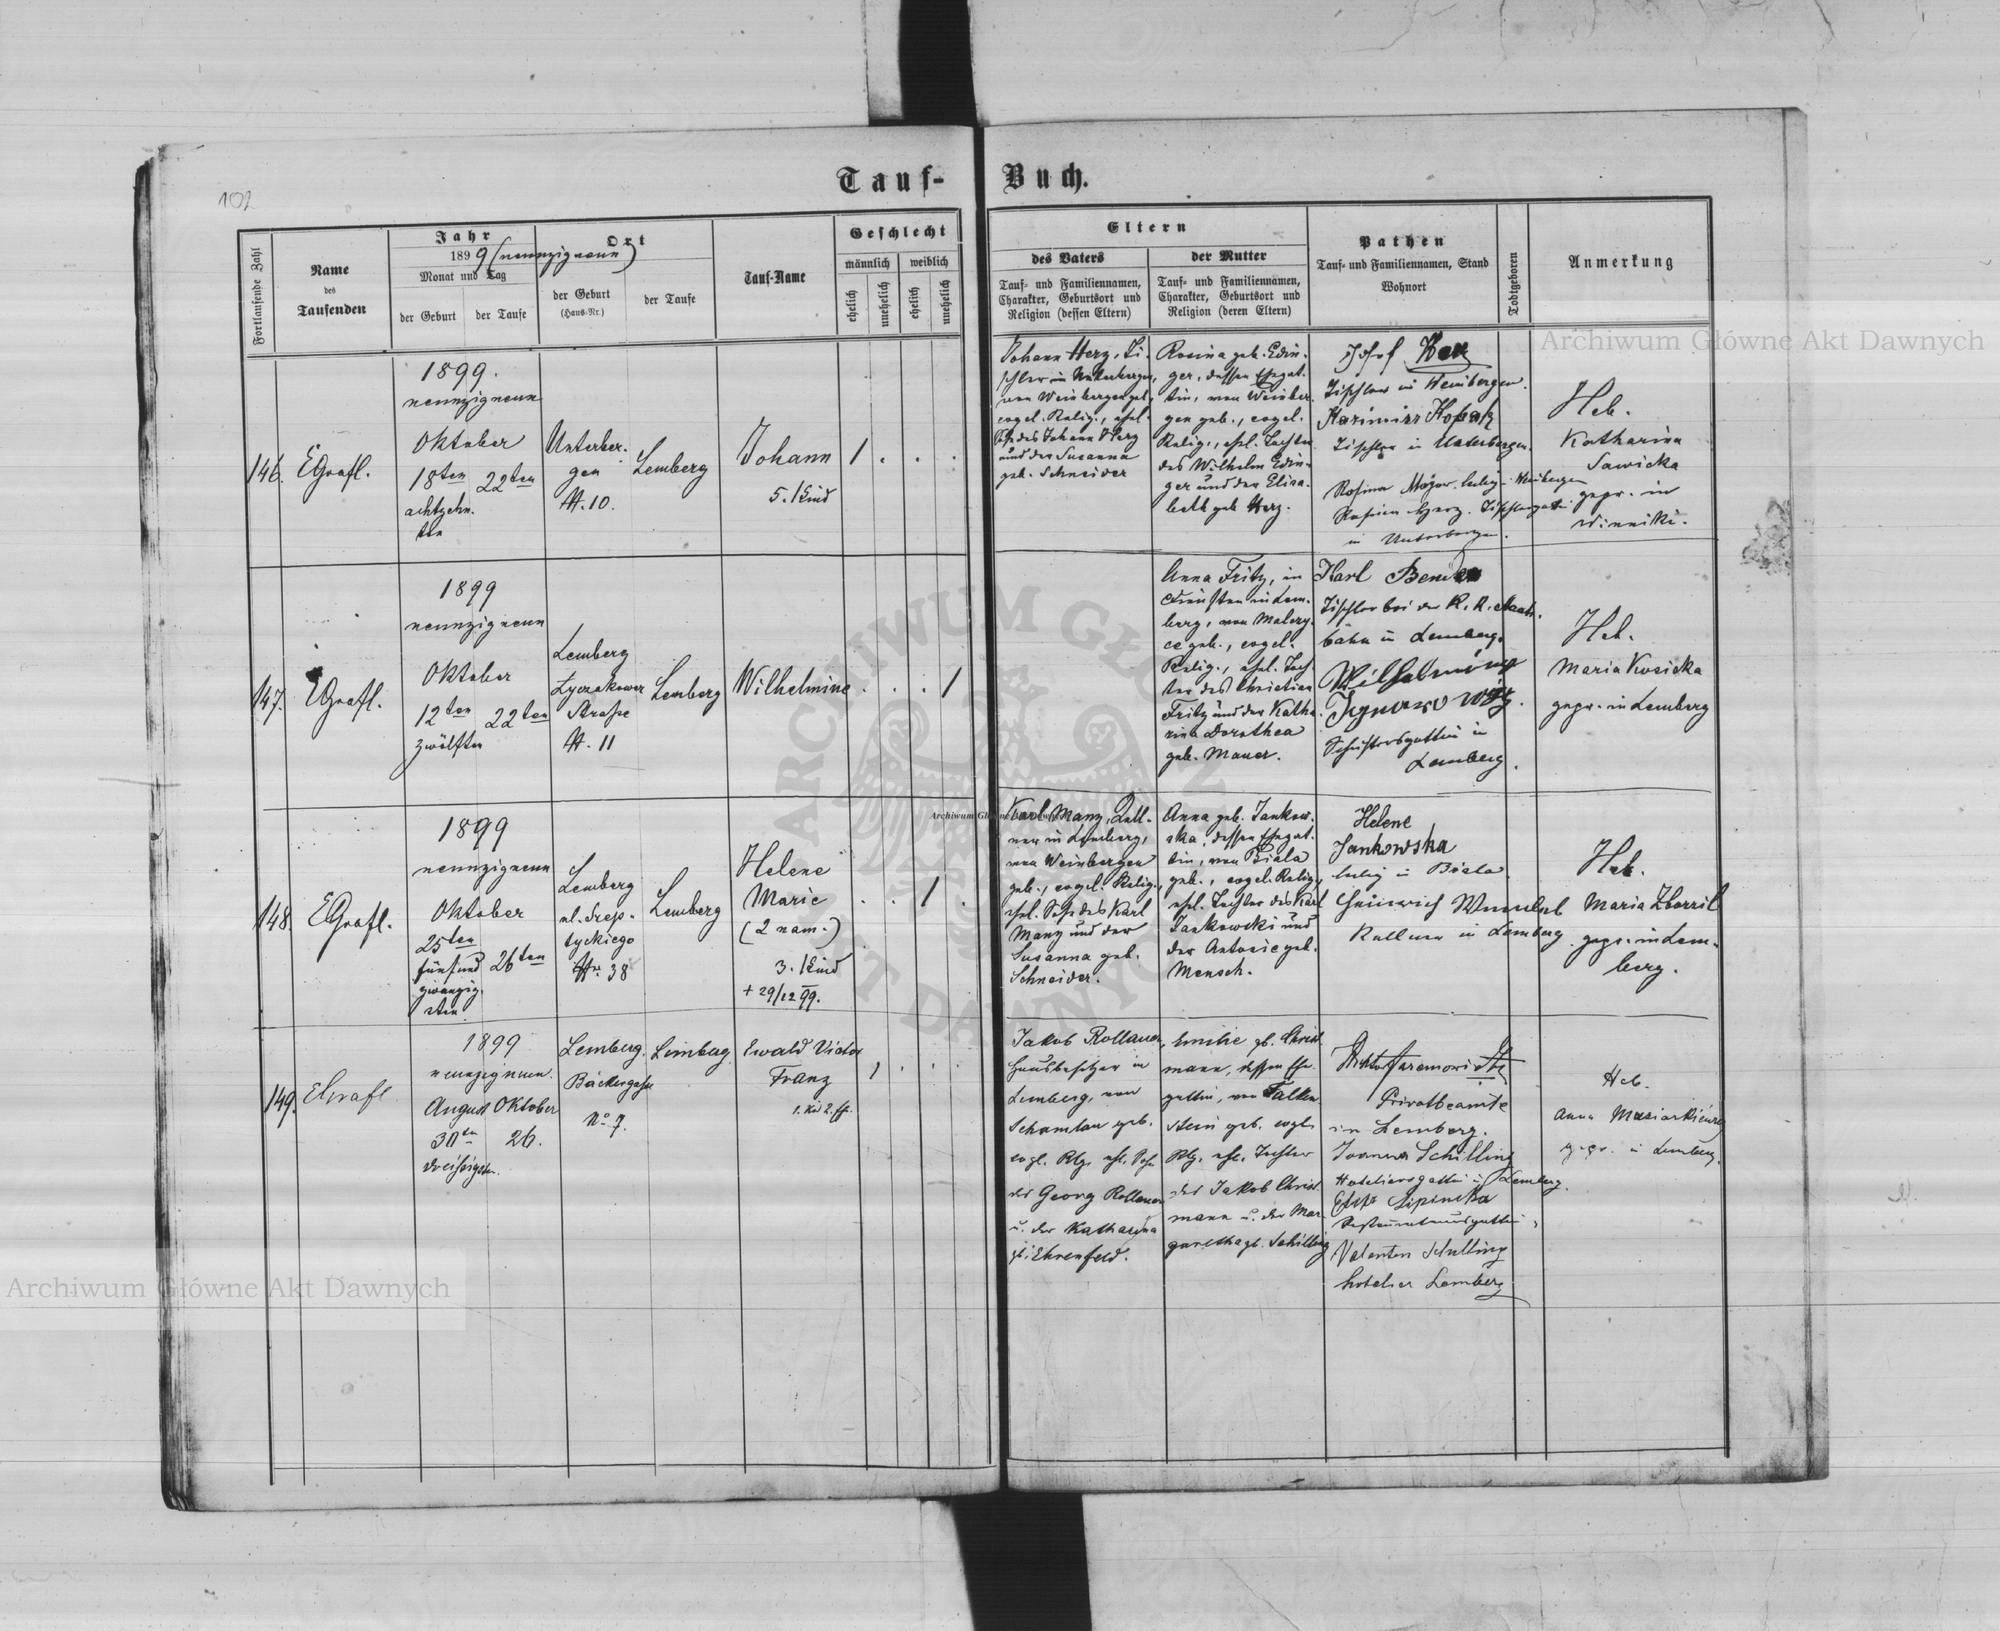 102
Tauf-Buch.
Fortlaufende Zahl
Name
des
Taufenden
Jahr
1899 (neunzigneun)
Monat und Tag
der Geburt
der Taufe
Ort
der Geburt
(Haus-Nr.)
der Taufe
Tauf-Name
Geschlecht
männlich
weiblich
ehelich
unehelich
ehelich
unehelich
Eltern
des Vaters
Tauf- und Familiennamen,
Charakter, Geburtsort und
Religion (dessen Eltern)
der Mutter
Tauf- und Familiennamen,
Charakter, Geburtsort und
Religion (deren Eltern)
Pathen
Tauf- und Familiennamen, Stand
Wohnort
Todtgeboren
Anmerkung
146.
EGrafl.
1899.
neunzigneun
Oktober
18ten 22ten
achtzehn-
ten
Unterber-
gen
N. 10.
Lemberg
Johann
5. Kind
1 . . .
Johann Herz, Ti-
schler in Unterbergen,
von Weinbergen geb.,
evgel. Relig., ehel.
Sohn des Johann Herz
und der Susanna
geb. Schneider
Rosina geb. Edin-
ger, dessen Ehegat-
tin, von Weinber-
gen geb., evgel.
Relig., ehel. Tochter
des Wilhelm Edin-
ger und der Elisa-
beth geb. Herz.
Josef Herz
Tischler in Weinbergen.
Kazimierz
Tischler in Unterbergen.
Rosina ledig Weinbergen
Herz. Tischlergattin
in Unterbergen.
Heb.
Katharina
Sawicka
gepr. in
Winniki.
147.
EGrafl.
1899
neunzigneun
Oktober
12ten 22ten
zwölften
Lemberg
Łyczakower
Straße
N. 11
Lemberg
Wilhelmine
. . . 1
Anna Fritz, in
Diensten in Lem-
berg, von
geb., evgel.
Relig., ehel. Toch-
ter des Christian
Fritz und der Katha-
rina Dorothea
geb. Mauer.
Karl Bender
Tischler bei der K. K. Staats-
bahn in Lemberg.
Wilhelmine
Schustersgattin in
Lemberg.
Heb.
Maria Kosicka
gepr. in Lemberg
148.
EGrafl.
1899
neunzigneun
Oktober
25ten 26ten
fünfund
zwanzig-
sten
Lemberg
ul.
tyckiego
Nr. 38
Lemberg
Helene
Marie
(2 nam.)
3. Kind
+ 29/12 99.
. . 1 .
Karl Manz, Kell-
ner in Lemberg,
von Weinbergen
geb., evgel. Relig.,
ehel. Sohn des Karl
Manz und der
Susanna geb.
Schneider.
Anna geb. Jankow-
ska, dessen Ehegat-
tin, von Biala
geb., evgel. Relig.,
ehel. Tochter des Karl
Jankowski und
der Antonie geb.
Mensch.
Helene
Jankowska
ledig in Biala
Heinrich
Kellner in Lemberg.
Heb.
Maria Zborril
gepr. in Lem-
berg.
149.
EGrafl.
1899
neunzigneun.
August Oktober
30ten 26.
dreißigsten.
Lemberg.
Bäckergasse
No 7.
Lemberg.
Ewald Victor
Franz
1. Kd 2. Eh.
1 . . .
Jakob Rollauer,
Hausbesitzer in
Lemberg, von
geb.
evgl. Rlg. ehl. Sohn
des Georg Rollauer
u. der Katharina
gb. Ehrenfeld.
Emilie gb. Christ-
mann, dessen Ehe-
gattin, von Falken-
stein geb. evgl.
Rlg. ehl. Tochter
des Jakob Christ-
mann u. der Mar-
garetha gb. Schilling
Privatbeamte
in Lemberg.
Joanna Schilling
Hoteliersgattin in Lemberg.
Lipinska
Restaurateursgattin,
Valentin Schilling
hotelier Lemberg
Heb.
Anna
gepr. in Lemberg.
Archiwum Główne Akt Dawnych
Archiwum Główne Akt Dawnych
ARCHIWUM GŁÓWNE AKT DAWNYCH